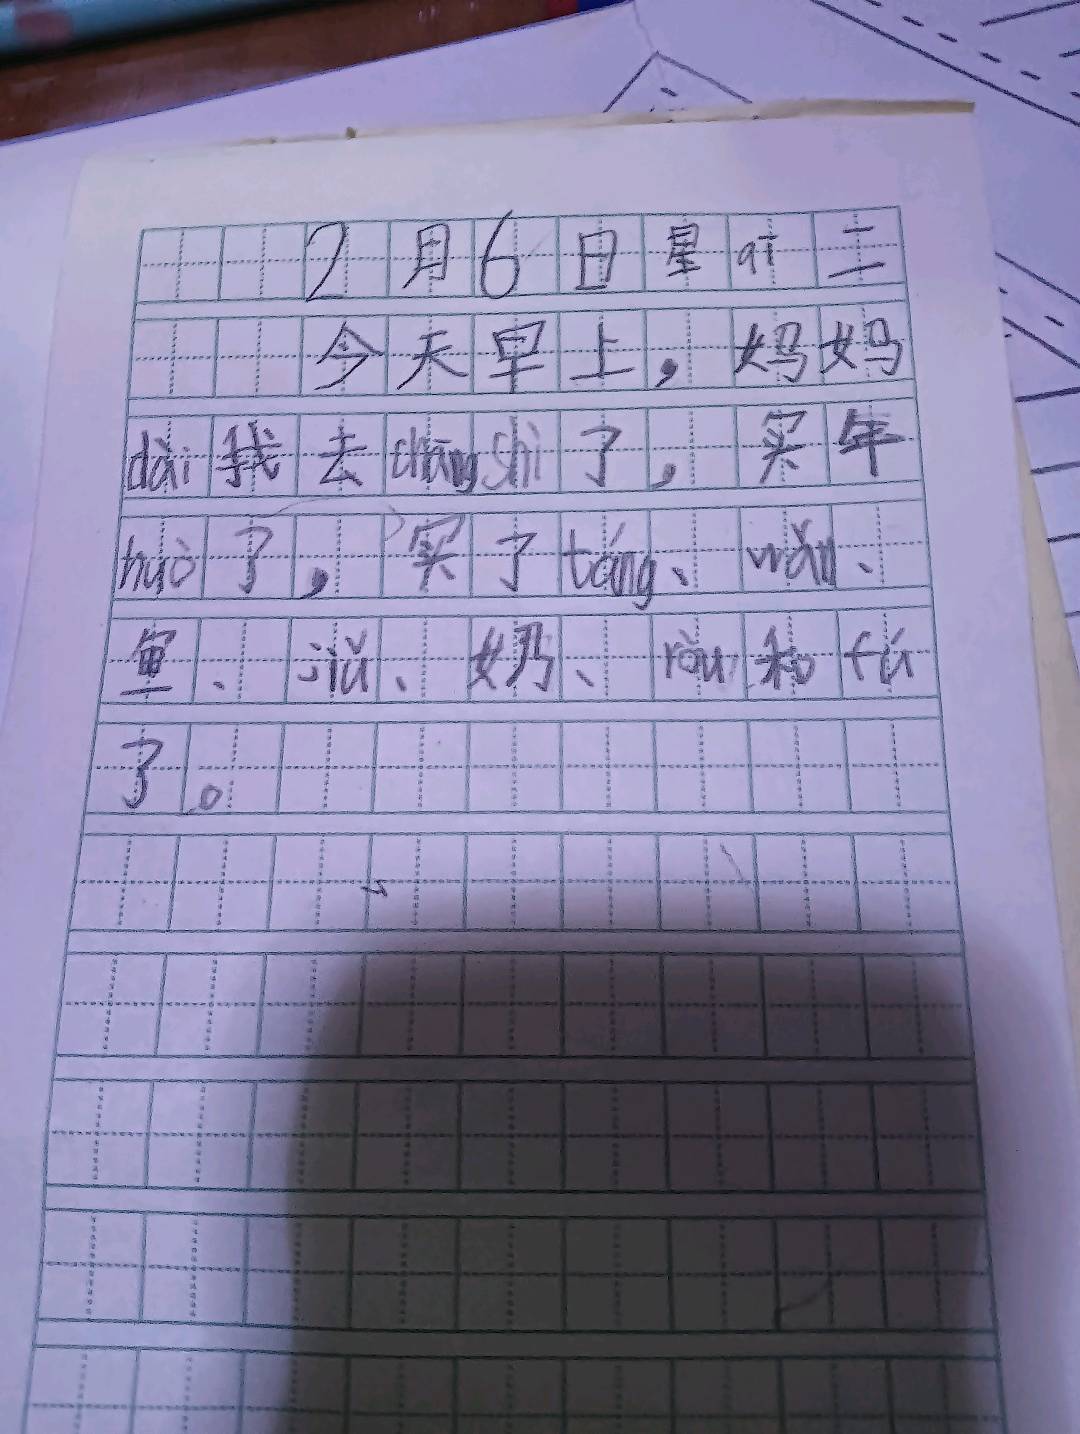 2月6日星qī二
今天早上，妈妈
dài我去chāng shì了，买年
huò了，买了táng、wǎn、
鱼、jiǔ、奶、ròu和fú
了。